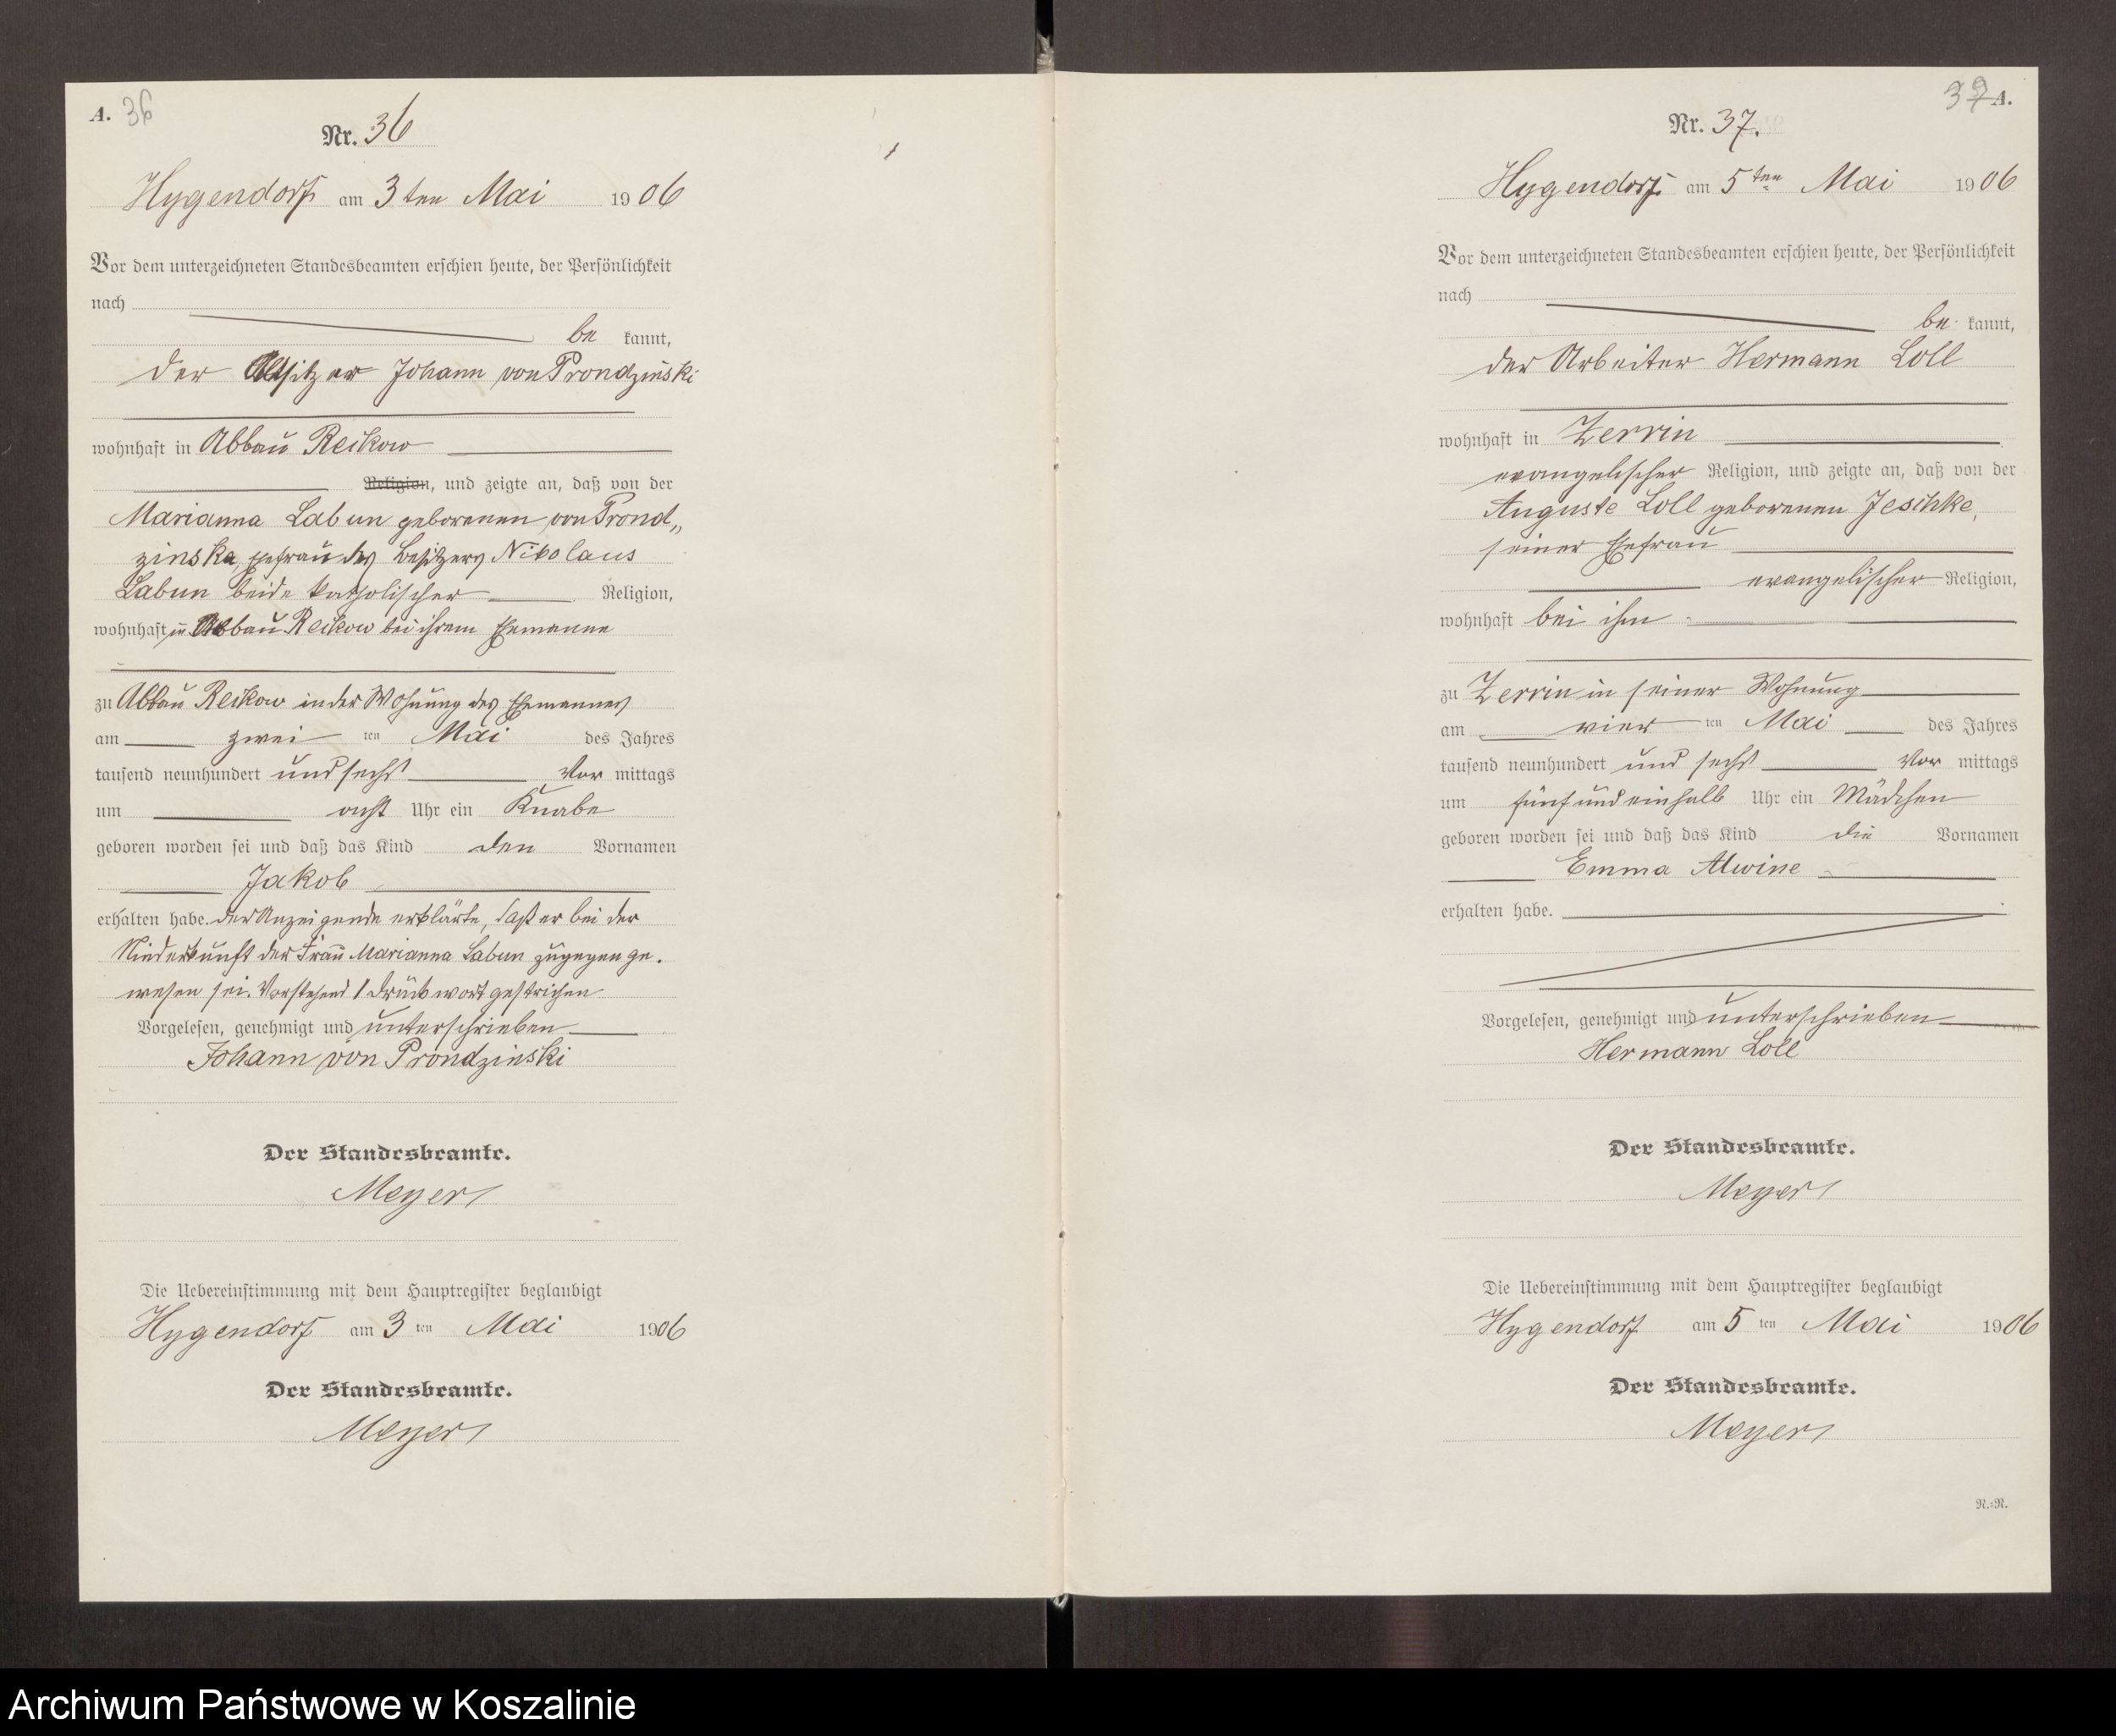 A. 36
Nr. 36
Hygendorf am 3ten Mai 1906
Vor dem unterzeichneten Standesbeamten erschien heute, der Persönlichkeit
nach
be kannt,
der Besitzer Johann von Prondzinski
wohnhaft in Abbau Reckow
Religion, und zeigte an, daß von der
Marianna Labun geborenen von Prond„
zinska, Ehefrau des Besitzers Nikolaus
Labun beide katholischer Religion,
wohnhaft in Abbau Reckow bei ihrem Ehemanne
zu Abbau Reckow in der Wohnung des Ehemannes
am zwei ten Mai des Jahres
tausend neunhundert und sechs Vor mittags
um acht Uhr ein Knabe
geboren worden sei und daß das Kind den Vornamen
Jakob
erhalten habe. der Anzeigende erklärte, daß er bei der
Niederkunft der Frau Marianna Labun zugegen ge.
wesen sei. Vorstehend 1 Druckwort gestrichen
Vorgelesen, genehmigt und unterschrieben
Johann von Prondzinski
Der Standesbeamte.
Meyer
Die Uebereinstimmung mit dem Hauptregister beglaubigt
Hygendorf am 3 ten Mai 1906
Der Standesbeamte.
Meyer
A.
Nr. 37.
Hygendorf am 5ten Mai 1906
Vor dem unterzeichneten Standesbeamten erschien heute, der Persönlichkeit
nach
be kannt,
der Arbeiter Hermann Loll
wohnhaft in Zerrin
evangelischer Religion, und zeigte an, daß von der
Auguste Loll geborenen Jeschke,
seiner Ehefrau
evangelischer Religion,
wohnhaft bei ihm
zu Zerrin in seiner Wohnung
am vier ten Mai des Jahres
tausend neunhundert und sechs Vor mittags
um fünf und einhalb Uhr ein Mädchen
geboren worden sei und daß das Kind die Vornamen
Emma Alwine
erhalten habe.
Vorgelesen, genehmigt und unterschrieben
Hermann Loll
Der Standesbeamte.
Meyer
Die Uebereinstimmung mit dem Hauptregister beglaubigt
Hygendorf am 5 ten Mai 1906
Der Standesbeamte.
Meyer
R.=R.
Archiwum Państwowe w Koszalinie